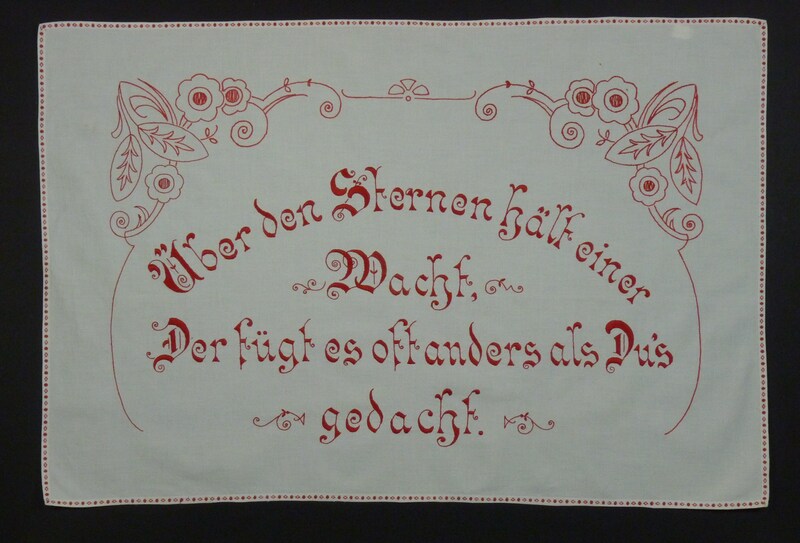 Über den Sternen hält einer
Wacht,
Der fügt es oft anders als Du's
gedacht.